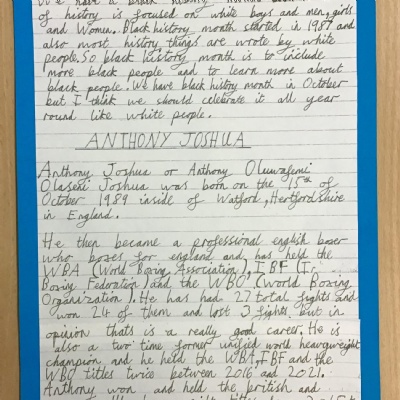 We have a black history
of history is focused on white boys and men, girls
and Women. Black history month started in 1987 and
also most history things are wrote by white
people. So black history month is to include
more black people and to learn more about
black people. We have black history month in October
but I think we should celebrate it all year
round like white people.
ANTHONY JOSHUA
Anthony Joshua or Anthony Oluwafemi
Olaseni Joshua was born on the 15th of
October 1989 inside of Watford, Hertfordshire
in England.
He then became a professional english boxer
who boxes for england and has held the
WBA (World Boxing Association), IBF (
Boxing Federation) and the WBO (World Boxing
Organization). He has had 27 total fights and
won 24 of them and lost 3 fights, but in
opinion thats is a really good career. He is
also a two time former unified world heavyweight
champion and he held the WBA, IBF and the
WBO titles twice between 2016 and 2021.
Anthony won and held the british and